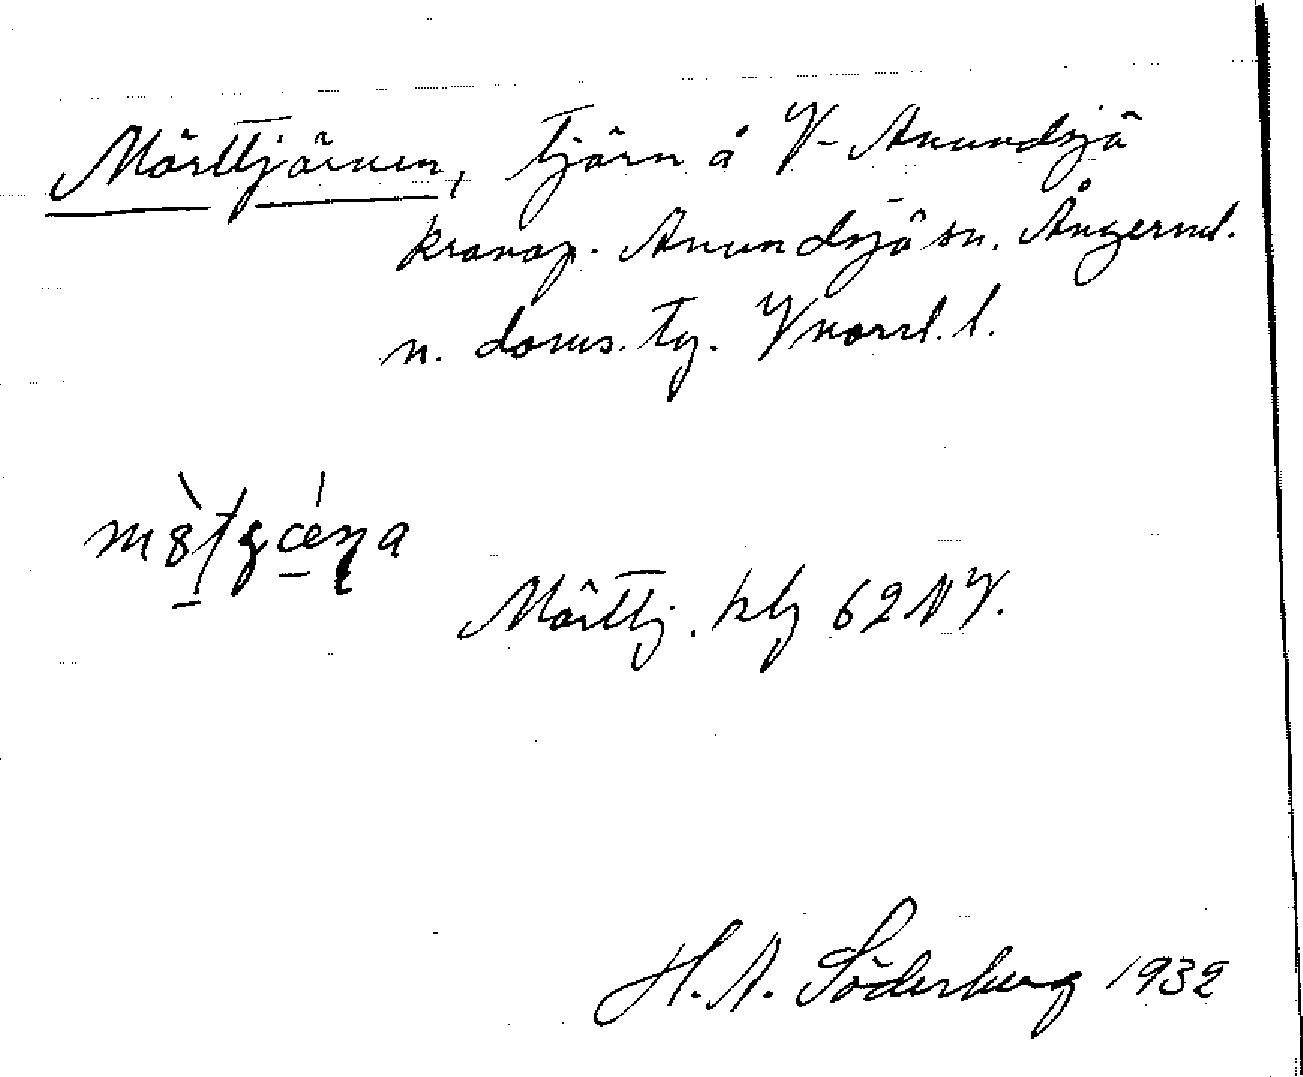 Mörttjärnen, tjärn å V-Anundsjö
kronop. Anundsjö sn. Ångerml.
n. doms. tg. Vnorrl. l.
Mörttj. kbg 62 NV.
H. A. Söderberg 1932